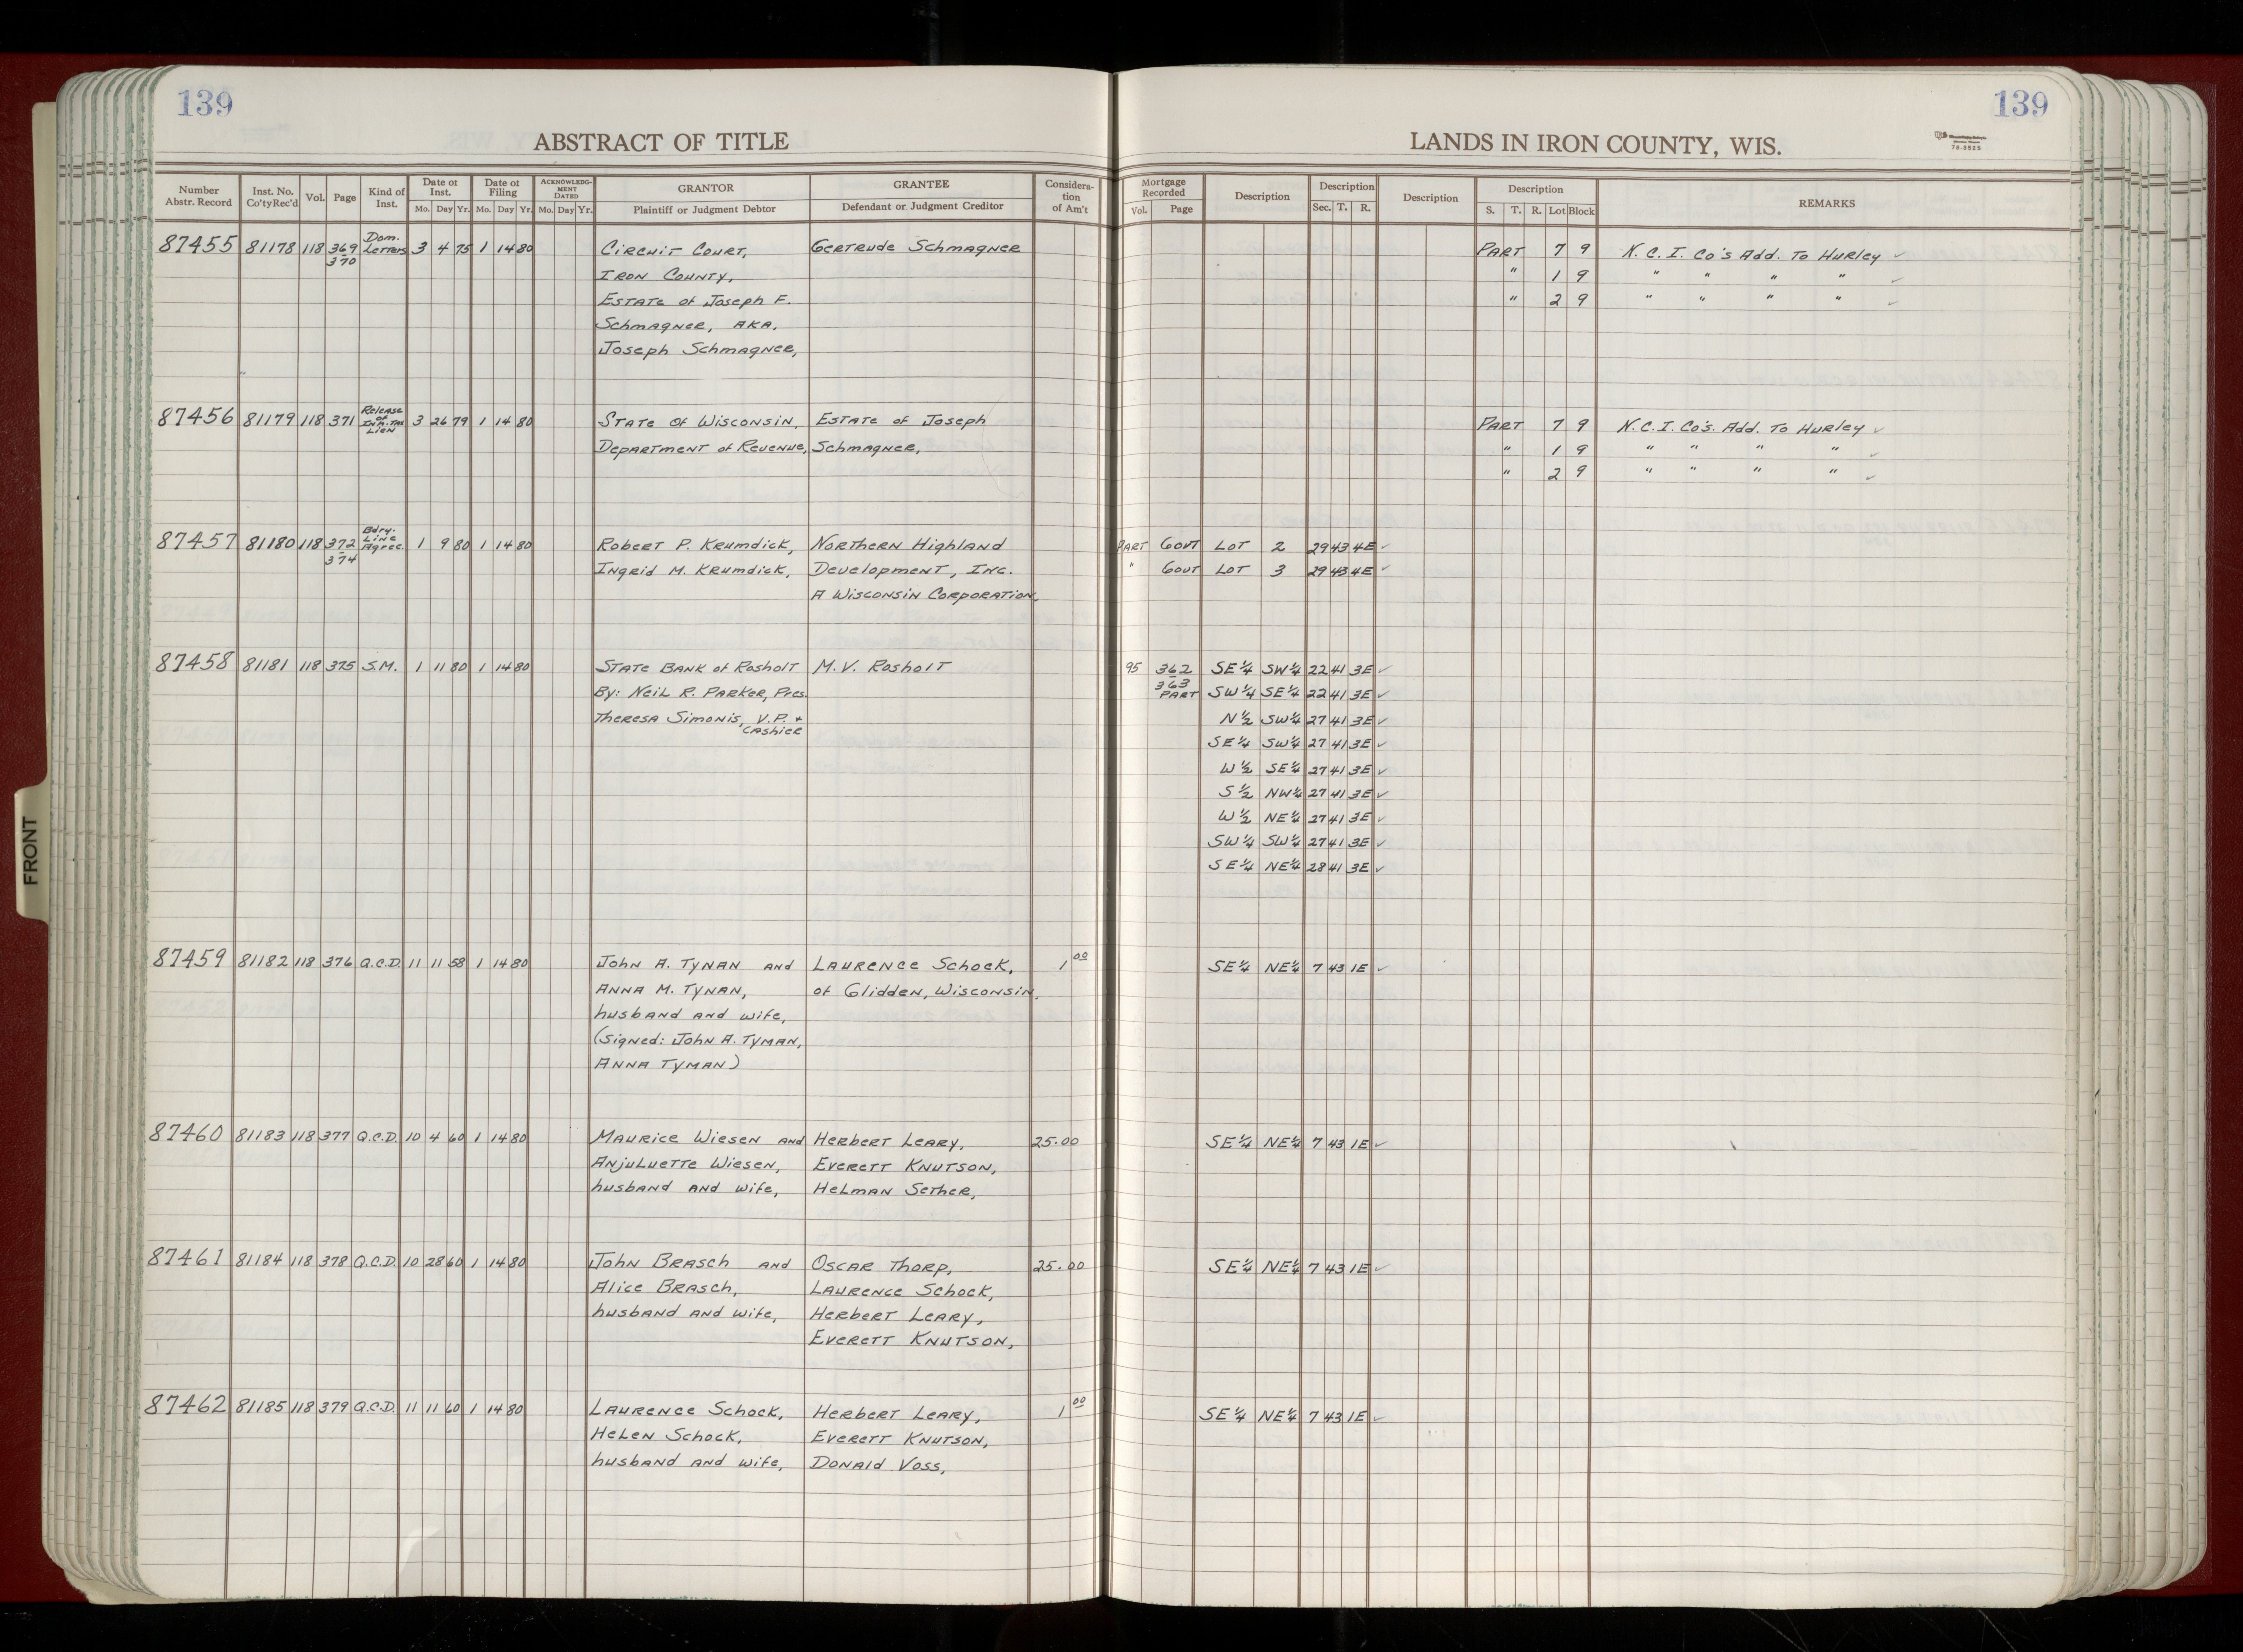 139
139
ABSTRACT OF TITLE
LANDS IN IRON COUNTY, WIS.
70-3525
FRONT
Number Abstr. Record Inst. No. Co'ty Rec'd Vol. Page Kind of Inst. Date of Inst. Mo. Day Yr. Date of Filing Mo. Day Yr. ACKNOWLEDGMENT DATED Mo. Day Yr. GRANTOR Plaintiff or Judgment Debtor GRANTEE Defendant or Judgment Creditor Consideration of Am't Mortgage Recorded Vol. Page Description Description Sec. T. R. Description Description S. T. R. Lot Block REMARKS
87455 81178 118 369-370 Dom. Letters 3 4 75 1 14 80 Circuit Court, Gertrude Schmagner PART 7 9 N.C.I. Co's Add. To Hurley ✓
Iron County, " 1 9 " " " " ✓
Estate of Joseph F. " 2 9 " " " " ✓
Schmagner, AKA,
Joseph Schmagner,
87456 81179 118 371 Release of Inh. Tax Lien 3 26 79 1 14 80 State of Wisconsin, Estate of Joseph PART 7 9 N.C.I. Co's. Add. To Hurley ✓
Department of Revenue, Schmagner, " 1 9 " " " " ✓
" 2 9 " " " " ✓
87457 81180 118 372-374 Bdry. Line Agree. 1 9 80 1 14 80 Robert P. Krumdick, Northern Highland PART Govt Lot 2 29 43 4E ✓
Ingrid M. Krumdick, Development, Inc. " Govt Lot 3 29 43 4E ✓
A Wisconsin Corporation,
87458 81181 118 375 S.M. 1 11 80 1 14 80 State Bank of Rosholt M.V. Rosholt 95 362-363 SE¼ SW¼ 22 41 3E ✓
By: Neil R. Parker, Pres. PART SW¼ SE¼ 22 41 3E ✓
Theresa Simonis, V.P. + Cashier N½ SW¼ 27 41 3E ✓
SE¼ SW¼ 27 41 3E ✓
W½ SE¼ 27 41 3E ✓
S½ NW¼ 27 41 3E ✓
W½ NE¼ 27 41 3E ✓
SW¼ SW¼ 27 41 3E ✓
SE¼ NE¼ 28 41 3E ✓
87459 81182 118 376 Q.C.D. 11 11 58 1 14 80 John A. Tynan and Laurence Schock, 1 00 SE¼ NE¼ 7 43 1E ✓
Anna M. Tynan, of Glidden, Wisconsin,
husband and wife,
(Signed: John A. Tyman,
Anna Tyman)
87460 81183 118 377 Q.C.D. 10 4 60 1 14 80 Maurice Wiesen and Herbert Leary, 25.00 SE¼ NE¼ 7 43 1E ✓
Anjuluette Wiesen, Everett Knutson,
husband and wife, Helman Sether,
87461 81184 118 378 Q.C.D. 10 28 60 1 14 80 John Brasch and Oscar Thorp, 25.00 SE¼ NE¼ 7 43 1E ✓
Alice Brasch, Laurence Schock,
husband and wife, Herbert Leary,
Everett Knutson,
87462 81185 118 379 Q.C.D. 11 11 60 1 14 80 Laurence Schock, Herbert Leary, 1 00 SE¼ NE¼ 7 43 1E ✓
Helen Schock, Everett Knutson,
husband and wife, Donald Voss,